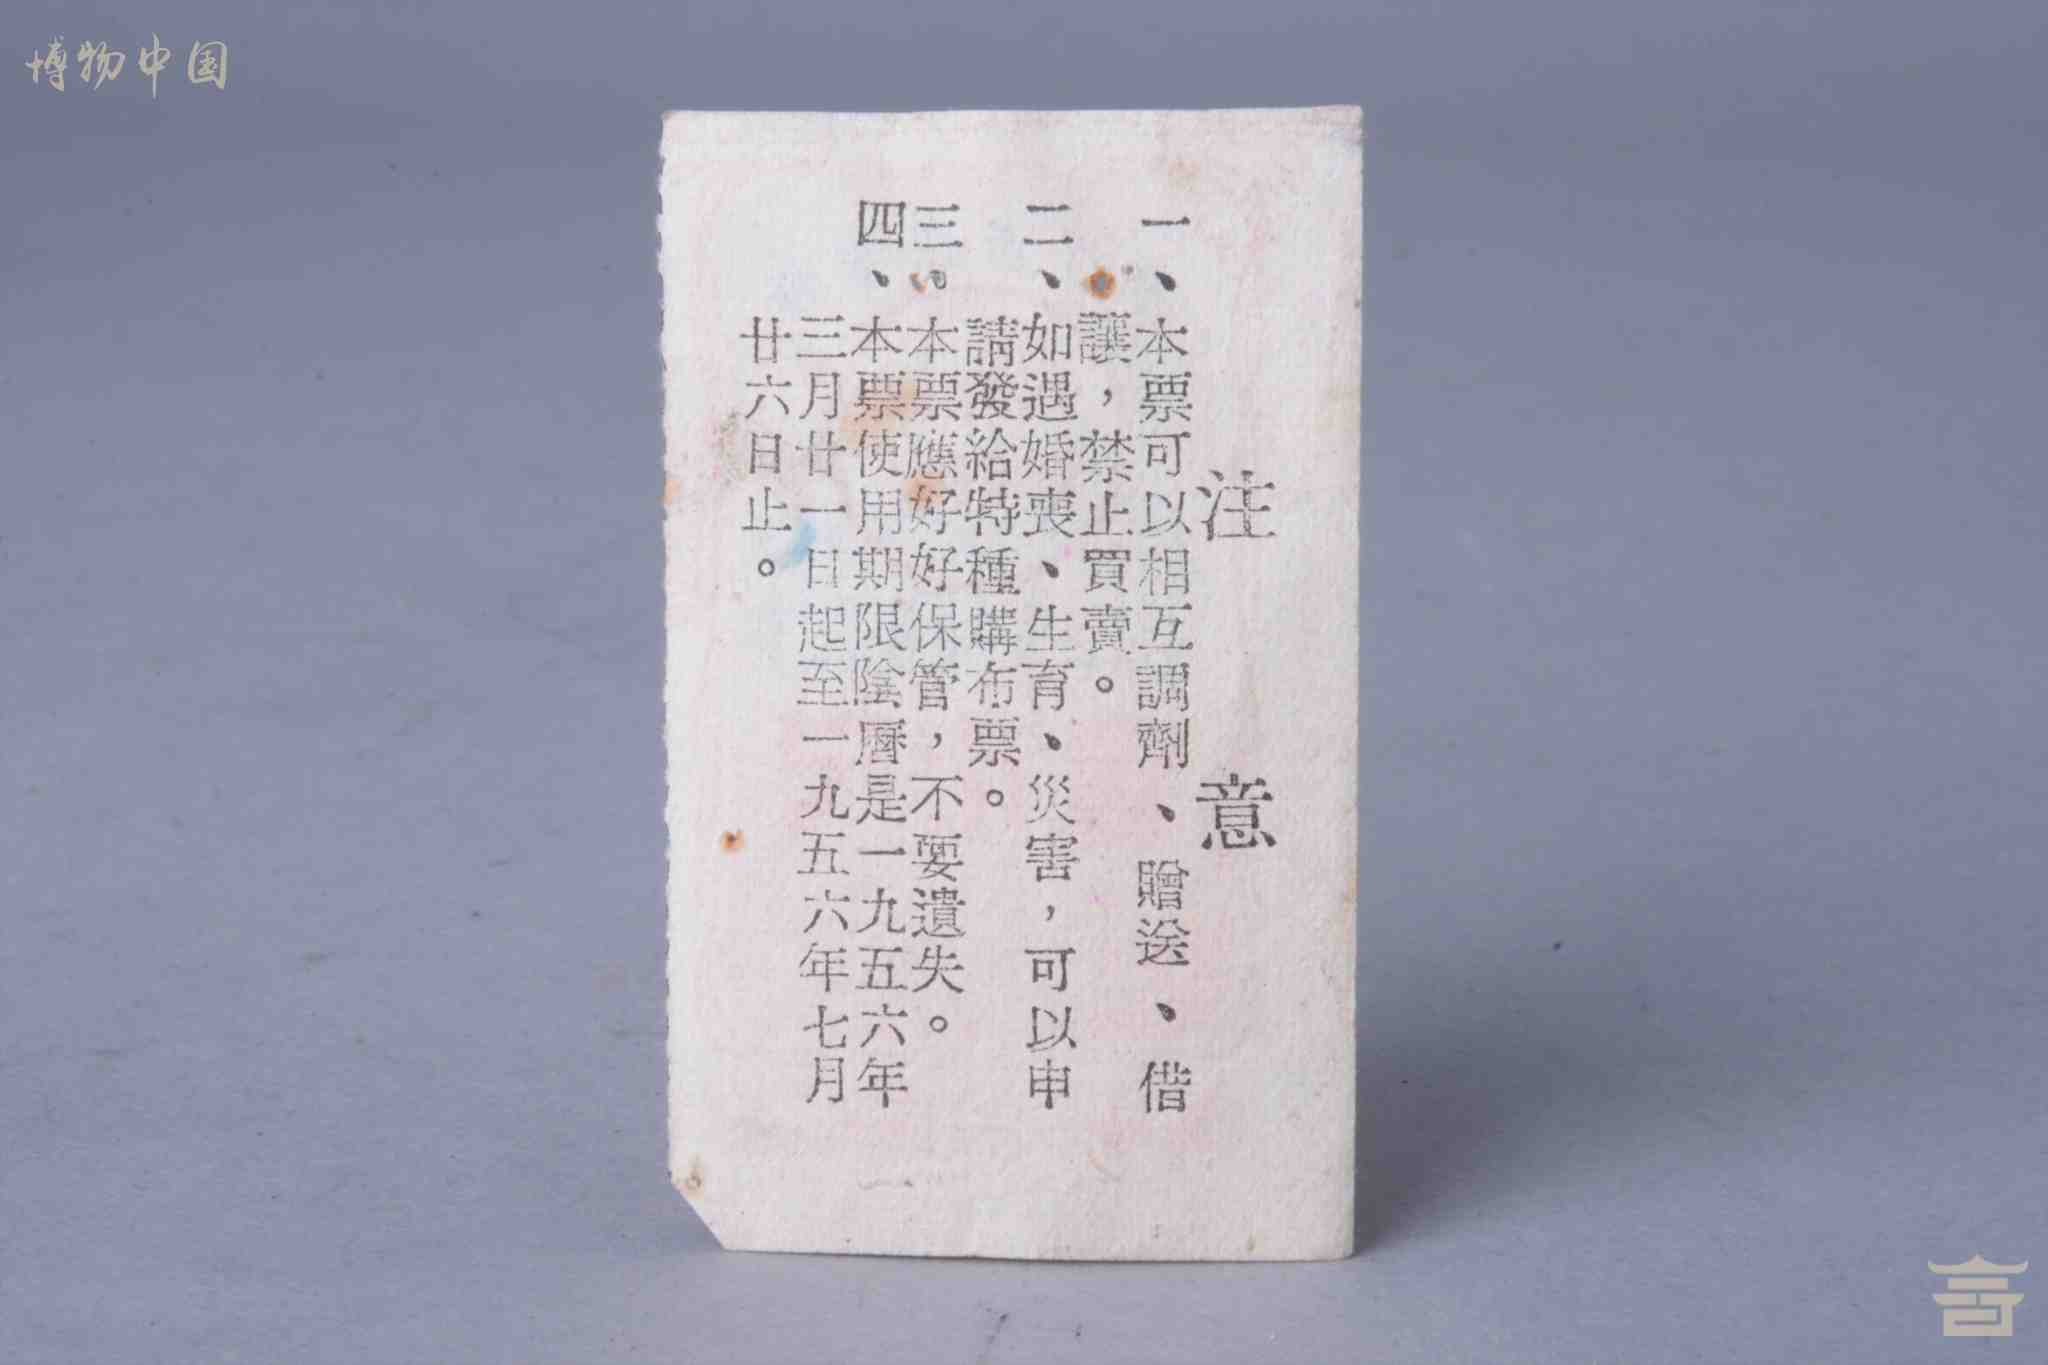 博物中国
注意
一、本票可以相互調劑、贈送、借
讓，禁止買賣。
二、如遇婚喪、生育、災害，可以申
請發給特種購布票。
三、本票應好好保管，不要遺失。
四、本票使用期限陰曆是一九五六年
三月廿一日起至一九五六年七月
廿六日止。